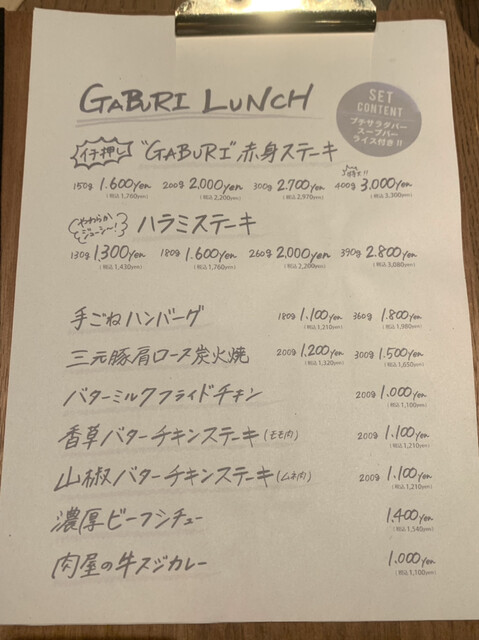 GABURI LUNCH
SET
CONTENT
プチサラダバー
スープバー
ライス付き!!
イチ押し "GABURI"赤身ステーキ
特大!!
150g 1.600yen 200g 2,000yen 300g 2.700yen 400g 3,000yen
(税込1,760yen) (税込2,200yen) (税込2,970yen) (税込3,300yen)
やわらかジューシー! ハラミステーキ
130g 1,300yen 180g 1.600yen 260g 2,000yen 390g 2.800yen
(税込1,430yen) (税込1,760yen) (税込2,200yen) (税込3,080yen)
手ごねハンバーグ 180g 1.100yen 360g 1.800yen
(税込1,210yen) (税込1,980yen)
三元豚肩ロース炭火焼 200g 1.200yen 300g 1.500yen
(税込1,320yen) (税込1,650yen)
バターミルクフライドチキン 200g 1.000yen
(税込1,100yen)
香草バターチキンステーキ(モモ肉) 200g 1.100yen
(税込1,210yen)
山椒バターチキンステーキ(ムネ肉) 200g 1.100yen
(税込1,210yen)
濃厚ビーフシチュー 1.400yen
(税込1,540yen)
肉屋の牛スジカレー 1.000yen
(税込1,100yen)